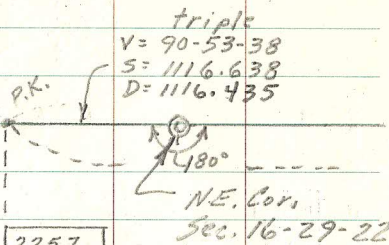 triple
V= 90-53-38
S= 1116.638
D= 1116.435
P.K.
180°
N.E. Cor.
Sec. 16-29-22
2257